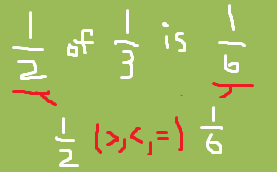 1/2 of 1/3 is 1/6
1/2 (>,<,=) 1/6